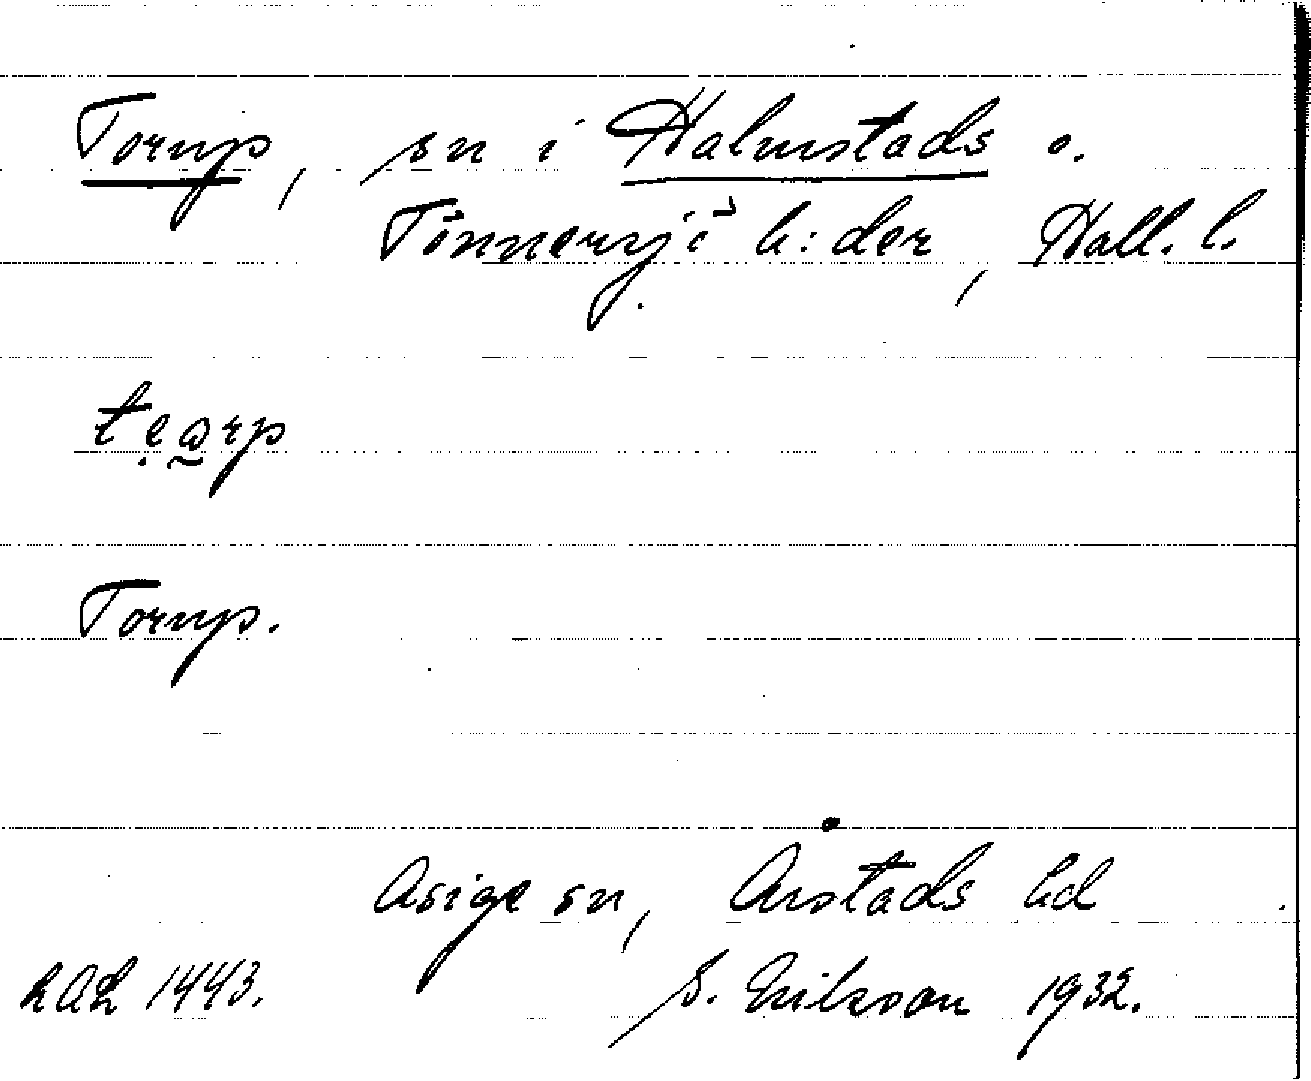 Torup, sn i Halmstads o.
Tönnersjö h:der, Hall. l.
tẹa̰rp
Torup.
Asige sn, Årstads hd
LAL 1443. S. Erikson 1932.